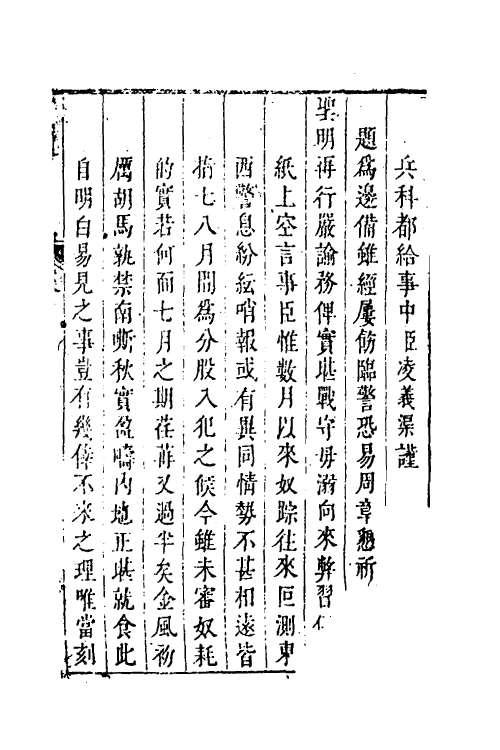 兵科都給事中臣凌義渠謹
題爲邊備雖經屢飭臨警恐易周章懇祈
聖明再行嚴諭務俾實堪戰守毋溺向來弊習
紙上空言事臣惟數月以來奴踪往來叵測東
西警息紛紜哨報或有異同情勢不甚相遠皆
指七八月間爲分股入犯之候今雖未審奴耗
的實若何而七月之期荏苒又過半矣金風初
厲胡馬孰禁南嘶秋實盈疇內地正堪就食此
自明白易見之事豈有幾倖不來之理唯當刻